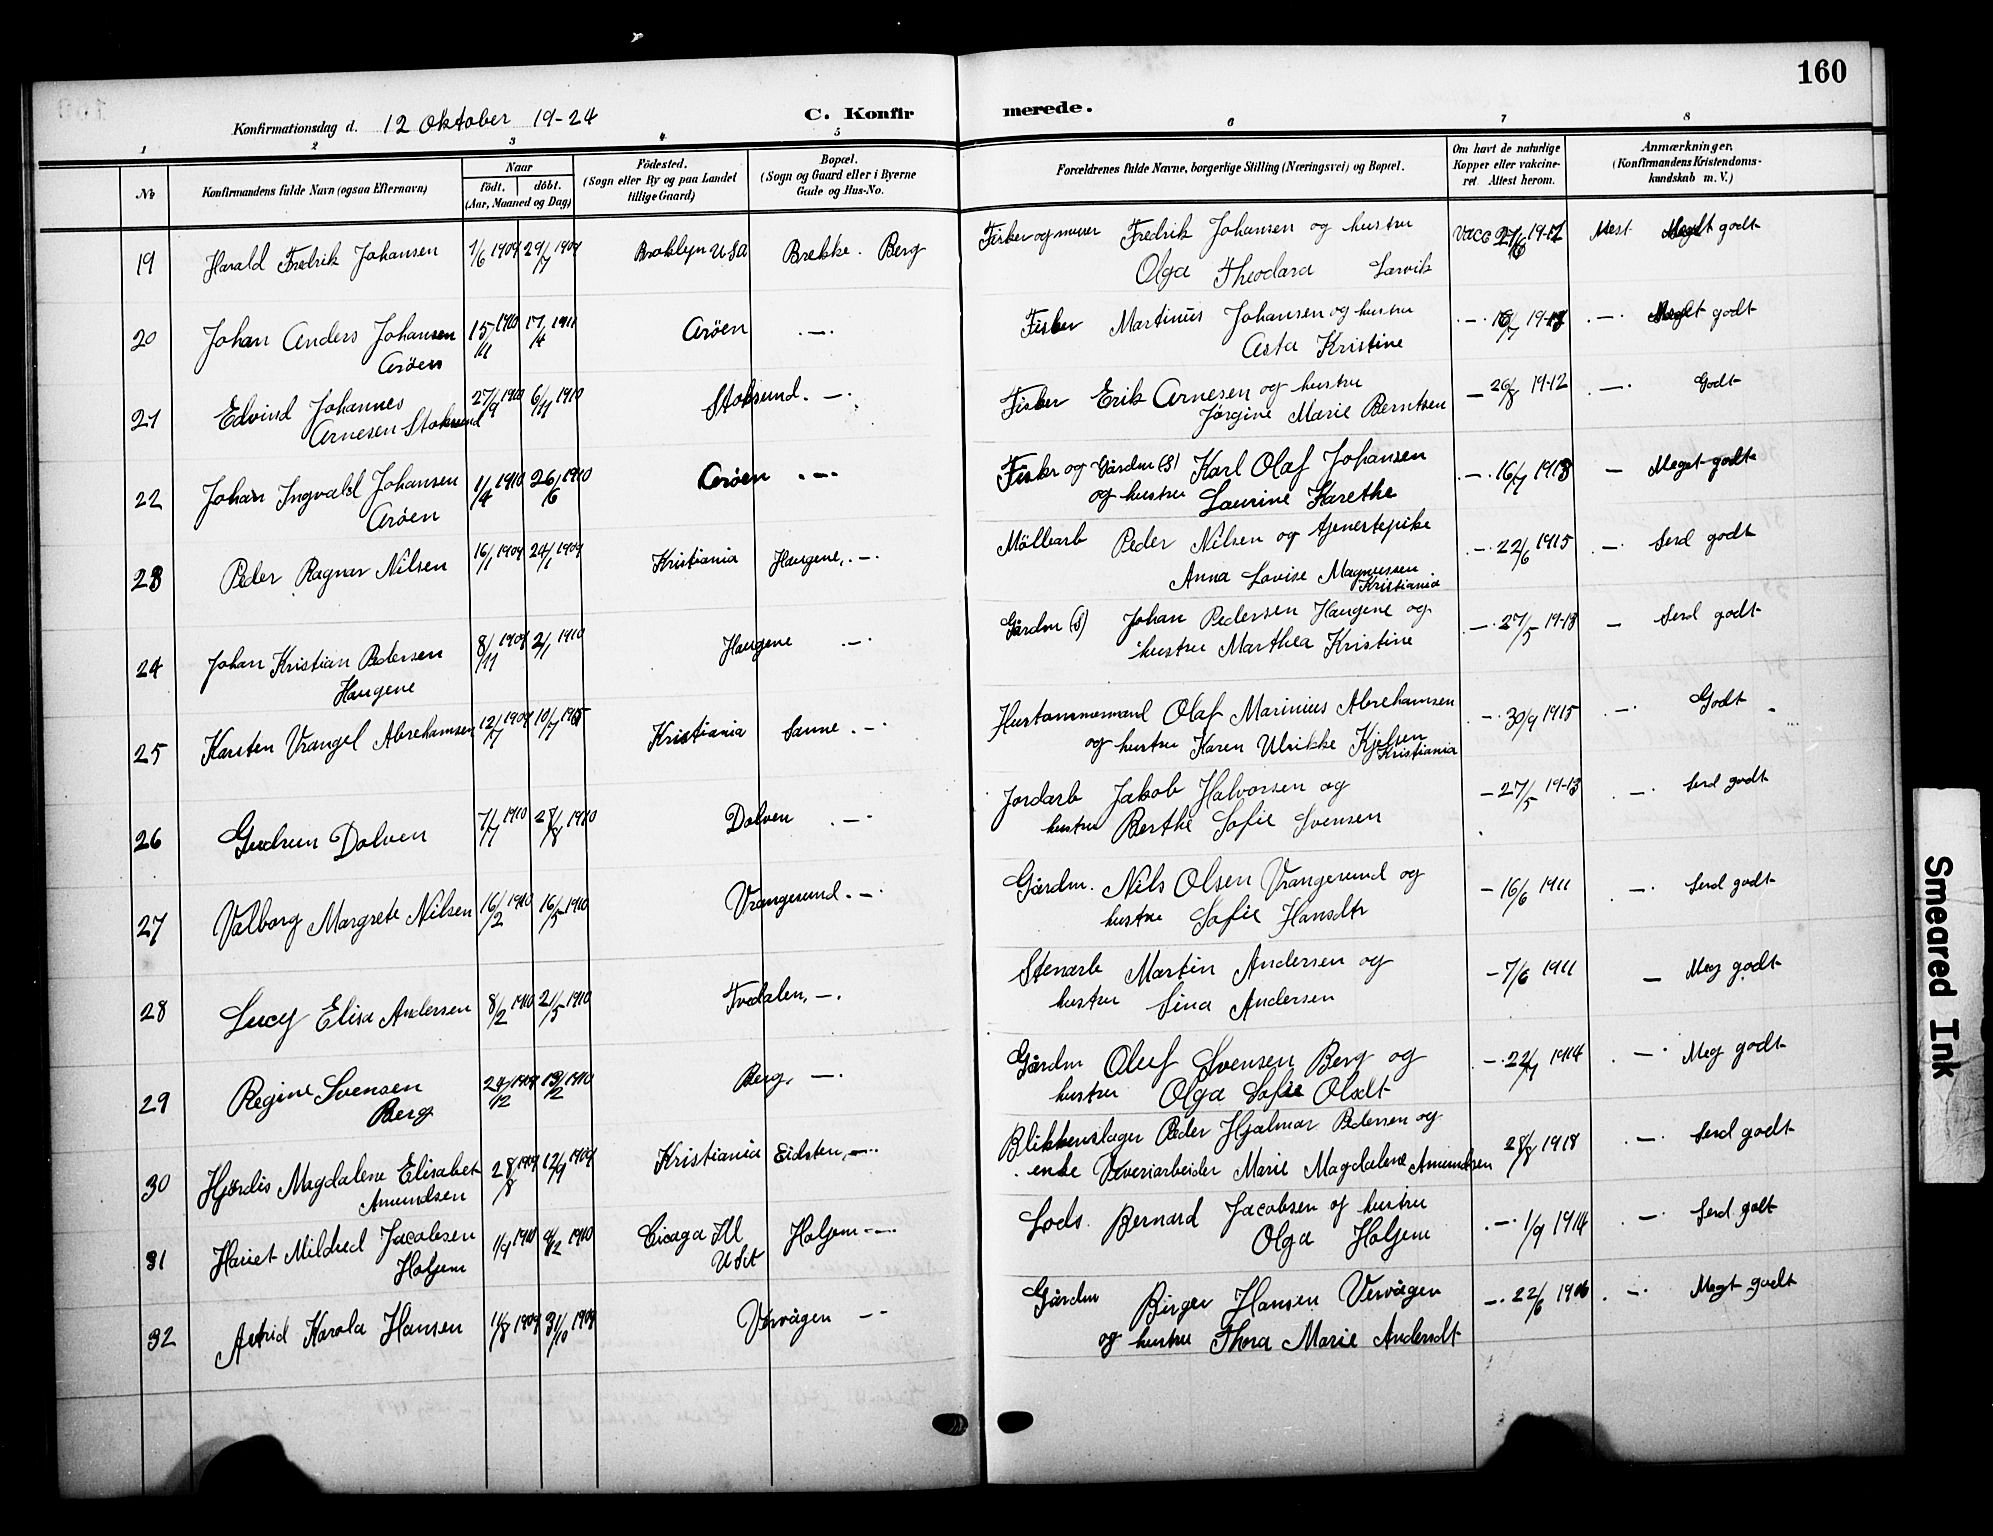 160
Konfirmationsdag d. 12 Oktober 19-24 C. Konfirmerede.
1 2 3 4 5 6 7 8
No. Konfirmandens fulde Navn (ogsaa Efternavn) Naar født. døbt. (Aar, Maaned og Dag) Födested. (Sogn eller By og paa Landet tillige Gaard) Bopæl. (Sogn og Gaard eller i Byerne Gade og Hus-No. Forældrenes fulde Navne, borgerlige Stilling (Næringsvei) og Bopæl. Om havt de naturlige Kopper eller vakcineret Attest herom. Anmærkninger. (Konfirmandens Kristendomskundskab m. V.)
19 Harald Fredrik Johansen 1/6 1909 29/7 1909 Broklyn USA Brekke. Berg Fisker og murer Fredrik Johansen og hustru Vacc 21/6 19-12 Mest Meget godt
Olga Theodara Larvik
20 Johan Anders Johansen 15/11 1910 17/4 1911 Arøen . — . Fisker Martinius Johansen og hustru . — . 16/7 19-13 . — . Meget godt
Arøen Asta Kristine
21 Edvind Johannes 27/9 1910 6/11 1910 Stoksund . — . Fisker Erik Arnesen og hustru — 26/8 19-12 . — . Godt
Arnesen Stoksund Jørgine Marie Berntsen
22 Johan Ingvald Johansen 1/4 1910 26/6 1910 Arøen . — Fisker og Gårdm (S) Karl Olaf Johansen . — . 16/7 1913 — Meget godt
Arøen og hustru Laurine Karethe
23 Peder Ragnar Nilsen 16/1 1909 24/1 1909 Kristiania Haugene . — . Møllearb Peder Nilsen og tjenestepike . — . 22/6 1915 . — . Serd godt
Anna Lovise Magnussen
Kristiania
24 Johan Kristian Pedersen 8/11 1909 2/1 1910 Haugene . — . Gårdm (S) Johan Pedersen Haugene og . — . 27/5 19-13 — Serd godt
Haugene hustru Marthea Kristine
25 Karsten Vrangel Abrehamsen 12/7 1909 10/7 1915 Kristiania Sanne . — Hustømmermand Olaf Marinius Abrehamsen . — . 30/9 1915 . — . Godt
og hustru Karen Ulrikke Kjelsen
Kristiania
26 Gudrun Dolven 7/7 1910 28/8 1910 Dolven . — . Jordarb Jakob Halvorsen og — 27/5 19-13 . — . Serd godt
hustru Berthe Sofie Svensen
27 Valborg Margrete Nilsen 16/2 1910 16/5 1910 Vrangesund . — . Gårdm. Nils Olsen Vrangesund og — 16/6 1911 . — . Serd godt
hustru Sofie Hansdtr
28 Lucy Elisa Andersen 8/2 1910 21/5 1910 Tvedalen, — . Stenarb Martin Andersen og — 7/6 1911 — Meg godt
hustru Sina Andersen
29 Regine Svensen 24/12 1909 13/2 1910 Berg, — . Gårdm Oluf Svensen Berg og — . 22/7 1914 . — . Meg godt
Berg hustru Olga Sofie Olsdt
30 Hjørdis Magdalene Elisabet 28/8 1909 12/9 1909 Kristiania Eidsten, — . Blikkenslager Peder Hjalmar Pedersen og 28/8 1918 . — . Serd godt
Amundsen enke Veveriarbeider Marie Magdalene Amundsen
31 Hariet Mildred Jacobsen 1/9 1910 4/12 1910 Cicago Ill Holjem . — . Lods. Bernard Jacobsen og hustru . — . 1/9 1914 . — . Serd godt
Holjem USA Olga Holjem
32 Astrid Karola Hansen 11/8 1909 31/10 1909 Vervågen — . Gårdm Birger Hansen Vervågen . — . 22/6 1916 . — . Meget godt
og hustru Thora Marie Andersdt
Smeared Ink